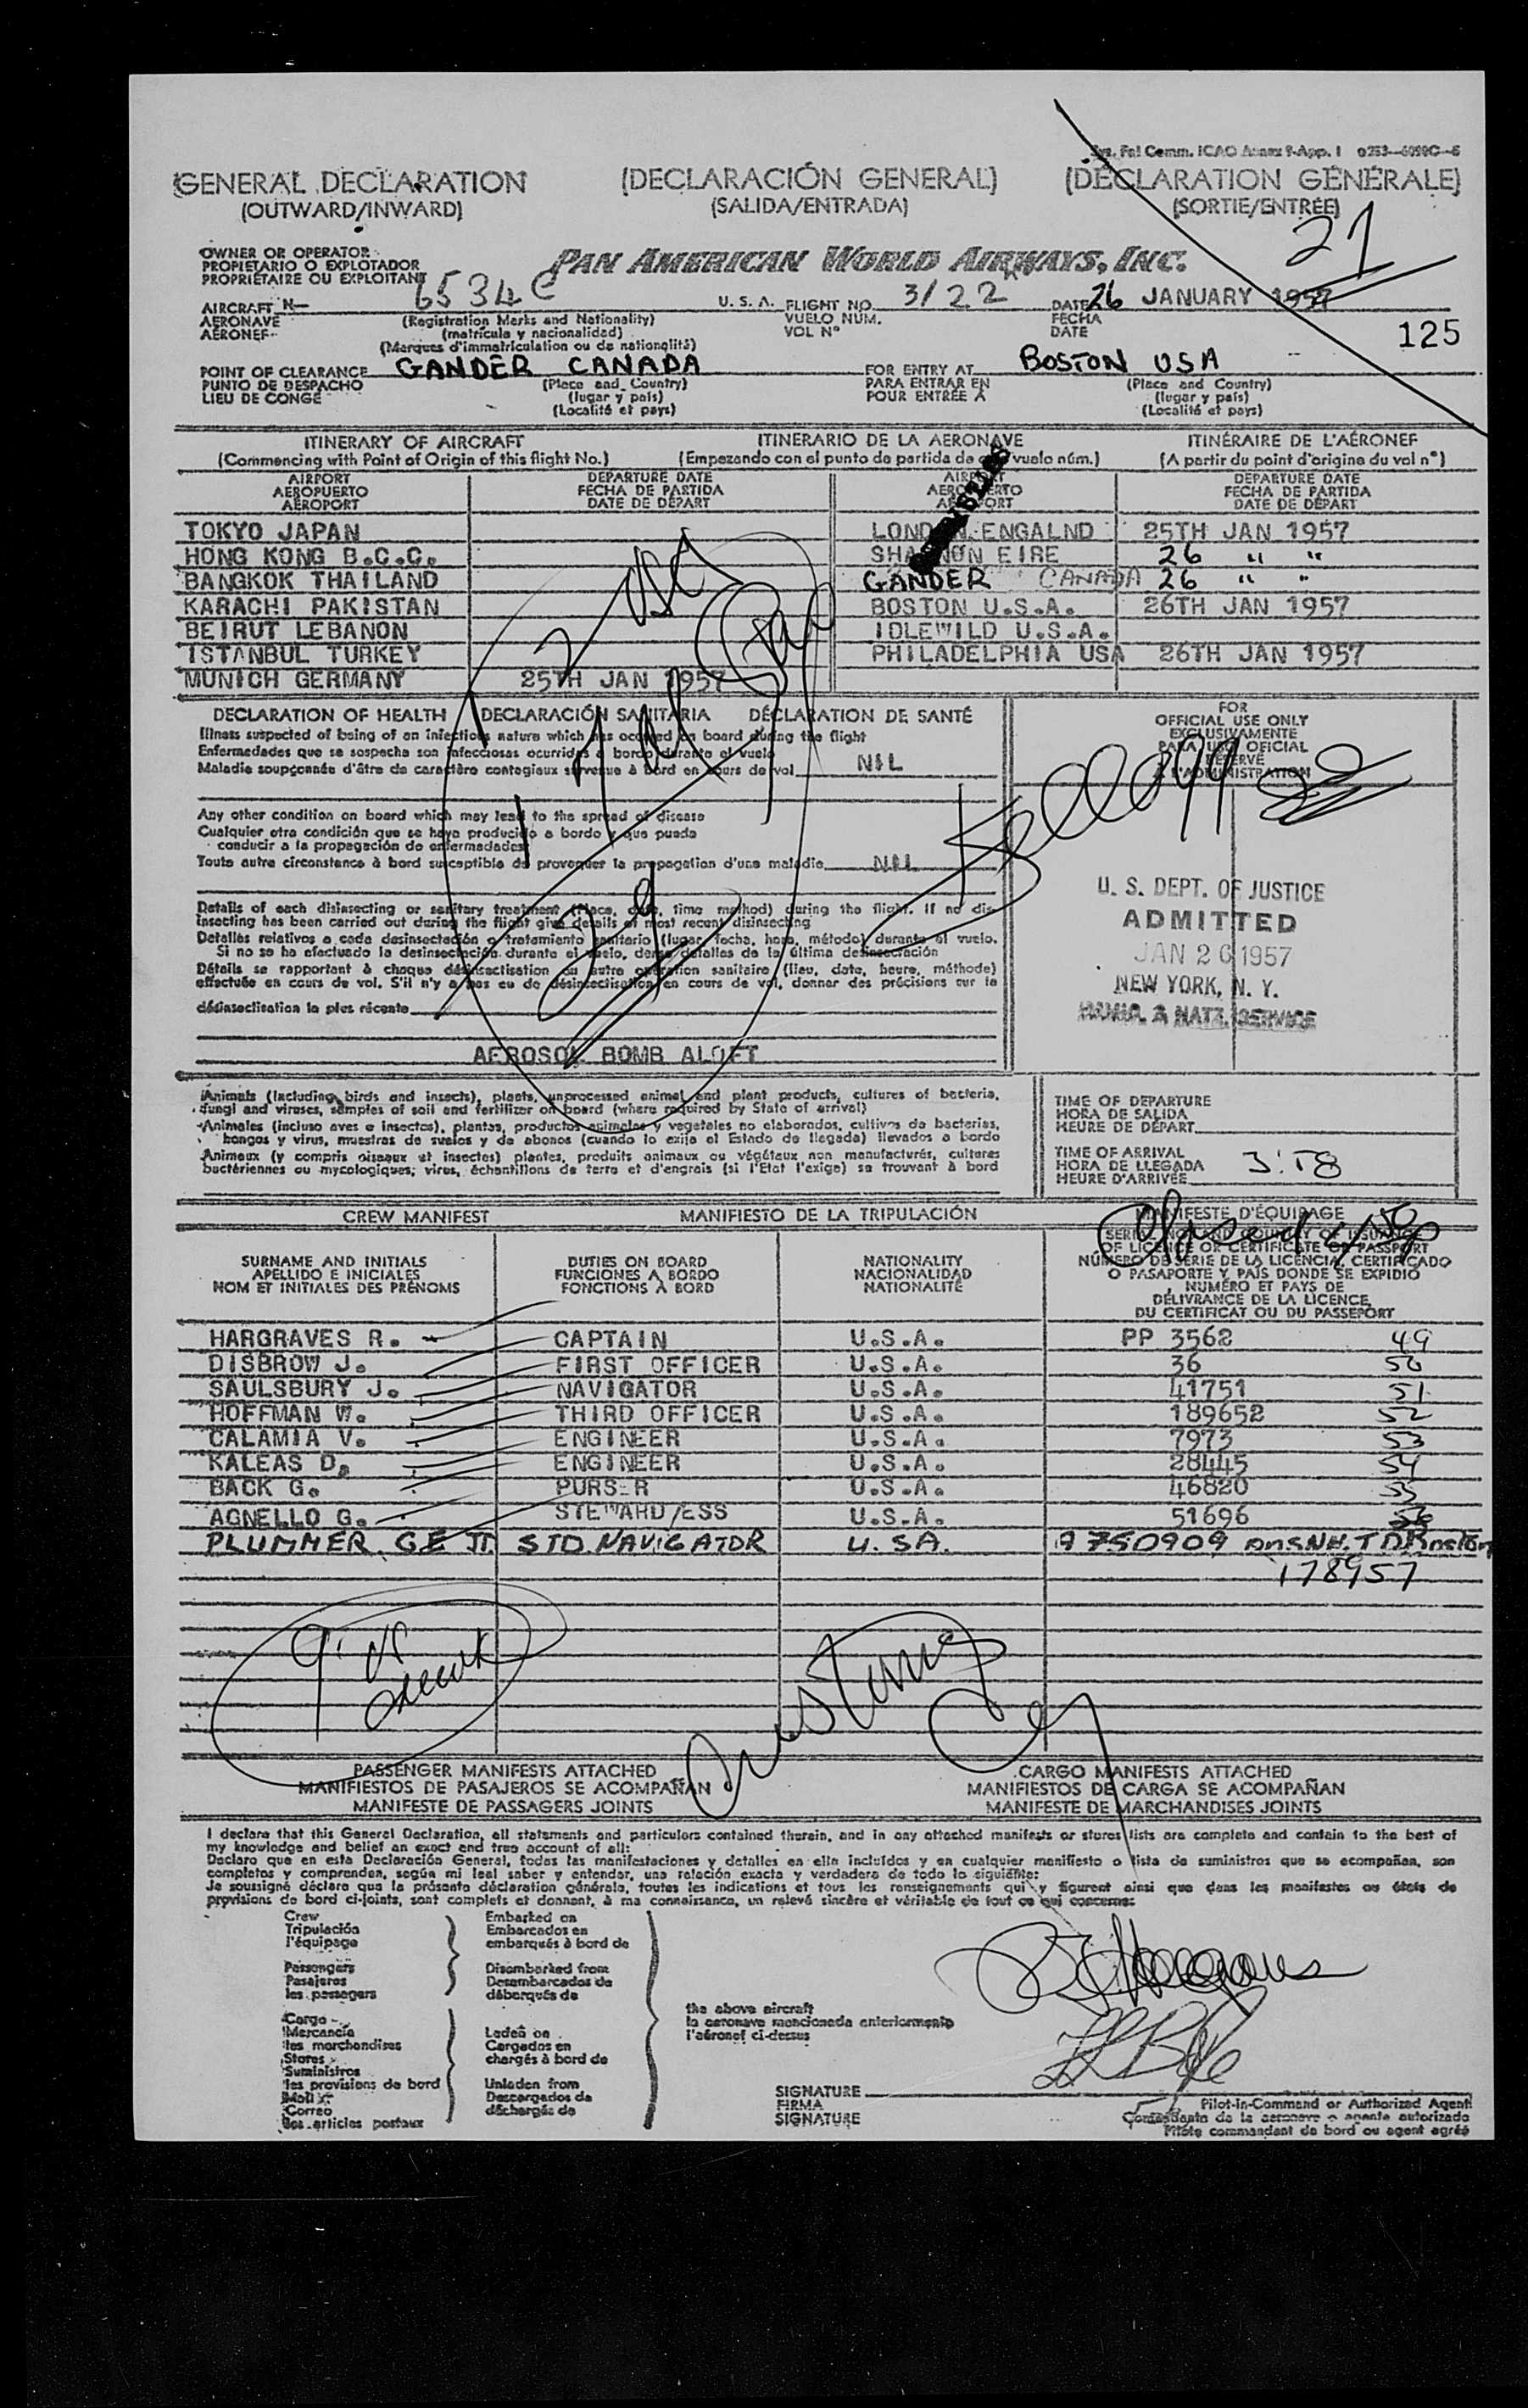 Sys. Fal Comm. ICAO Annex 9-App. I
GENERAL DECLARATION (DECLARACIÓN GENERAL) (DÉCLARATION GÉNÉRALE)
(OUTWARD/INWARD) (SALIDA/ENTRADA) (SORTIE/ENTRÉE)
21
OWNER OR OPERATOR
PROPIETARIO O EXPLOTADOR PAN AMERICAN WORLD AIRWAYS, INC.
PROPRIÉTAIRE OU EXPLOITANT
AIRCRAFT N- 6534C U. S. A. FLIGHT NO. 3/22 DATE 26 JANUARY 1957
AERONAVE (Registration Marks and Nationality) VUELO NÚM. FECHA
AÉRONEF (matrícula y nacionalidad) VOL N° DATE
(Marques d'immatriculation ou de nationalité)
125
POINT OF CLEARANCE GANDER CANADA FOR ENTRY AT BOSTON USA
PUNTO DE DESPACHO (Place and Country) PARA ENTRAR EN (Place and Country)
LIEU DE CONGÉ (lugar y país) POUR ENTRÉE À (lugar y país)
(Localité et pays) (Localité et pays)
ITINERARY OF AIRCRAFT ITINERARIO DE LA AERONAVE ITINÉRAIRE DE L'AÉRONEF
(Commencing with Point of Origin of this flight No.) (Empezando con el punto de partida de vuelo núm.) (A partir du point d'origine du vol n°)
AIRPORT DEPARTURE DATE AIRPORT DEPARTURE DATE
AEROPUERTO FECHA DE PARTIDA AEROPUERTO FECHA DE PARTIDA
AÉROPORT DATE DE DÉPART AÉROPORT DATE DE DÉPART
TOKYO JAPAN LONDON ENGALND 25TH JAN 1957
HONG KONG B.C.C. SHANNON EIRE 26 " "
BANGKOK THAILAND GANDER CANADA 26 " "
KARACHI PAKISTAN BOSTON U.S.A. 26TH JAN 1957
BEIRUT LEBANON IDLEWILD U.S.A.
ISTANBUL TURKEY PHILADELPHIA USA 26TH JAN 1957
MUNICH GERMANY 25TH JAN 1957
DECLARATION OF HEALTH DECLARACIÓN SANITARIA DÉCLARATION DE SANTÉ
Illness suspected of being of an infectious nature which has occurred on board during the flight
Enfermedades que se sospecha son infecciosas ocurridas a bordo durante el vuelo
Maladie soupçonnée d'être de caractère contagieux survenue à bord en cours de vol NIL
FOR
OFFICIAL USE ONLY
EXCLUSIVAMENTE
PARA USO OFICIAL
RÉSERVÉ
À L'ADMINISTRATION
Kellogg
Any other condition on board which may lead to the spread of disease
Cualquier otra condición que se haya producido a bordo y que pueda
conducir a la propagación de enfermedades
Toute autre circonstance à bord susceptible de provoquer la propagation d'une maladie NIL
Details of each disinsecting or sanitary treatment (Place, date, time method) during the flight. If no dis-
insecting has been carried out during the flight give details of most recent disinsecting
Detalles relativos a cada desinsectación o tratamiento sanitario (lugar, fecha, hora, método) durante el vuelo.
Si no se ha efectuado la desinsectación durante el vuelo, dense detalles de la última desinsectación
Détails se rapportant à chaque désinsectisation ou autre opération sanitaire (lieu, date, heure, méthode)
effectuée en cours de vol. S'il n'y a pas eu de désinsectisation en cours de vol, donner des précisions sur la
désinsectisation la plus récente
AEROSOL BOMB ALOFT
U. S. DEPT. OF JUSTICE
ADMITTED
JAN 26 1957
NEW YORK, N. Y.
IMMIG. & NATZ. SERVICE
Animals (including birds and insects), plants, unprocessed animal and plant products, cultures of bacteria,
fungi and viruses, samples of soil and fertilizer on board (where required by State of arrival)
Animales (incluso aves e insectos), plantas, productos animales y vegetales no elaborados, cultivos de bacterias,
hongos y virus, muestras de suelos y de abonos (cuando lo exija el Estado de llegada) llevados a bordo
Animaux (y compris oiseaux et insectes) plantes, produits animaux ou végétaux non manufacturés, cultures
bactériennes ou mycologiques; virus, échantillons de terre et d'engrais (si l'Etat l'exige) se trouvant à bord
TIME OF DEPARTURE
HORA DE SALIDA
HEURE DE DÉPART
TIME OF ARRIVAL
HORA DE LLEGADA 3:58
HEURE D'ARRIVÉE
CREW MANIFEST MANIFIESTO DE LA TRIPULACIÓN MANIFESTE D'ÉQUIPAGE
SURNAME AND INITIALS DUTIES ON BOARD NATIONALITY SERIAL NO. AND COUNTRY OF ISSUANCE OF LICENCE OR CERTIFICATE OR PASSPORT
APELLIDO E INICIALES FUNCIONES A BORDO NACIONALIDAD NÚMERO DE SERIE DE LA LICENCIA, CERTIFICADO O PASAPORTE Y PAÍS DONDE SE EXPIDIÓ
NOM ET INITIALES DES PRÉNOMS FONCTIONS À BORD NATIONALITÉ NUMÉRO ET PAYS DE DÉLIVRANCE DE LA LICENCE, DU CERTIFICAT OU DU PASSEPORT
HARGRAVES R. CAPTAIN U.S.A. PP 3562 49
DISBROW J. FIRST OFFICER U.S.A. 36 50
SAULSBURY J. NAVIGATOR U.S.A. 41751 51
HOFFMAN W. THIRD OFFICER U.S.A. 189652 52
CALAMIA V. ENGINEER U.S.A. 7973 53
KALEAS D. ENGINEER U.S.A. 28445 54
BACK G. PURSER U.S.A. 46820 55
AGNELLO G. STEWARD/ESS U.S.A. 51696 56
PLUMMER. G E Jr. STD. NAVIGATOR U.SA. 9750909 Boston
178957
PASSENGER MANIFESTS ATTACHED CARGO MANIFESTS ATTACHED
MANIFIESTOS DE PASAJEROS SE ACOMPAÑAN MANIFIESTOS DE CARGA SE ACOMPAÑAN
MANIFESTE DE PASSAGERS JOINTS MANIFESTE DE MARCHANDISES JOINTS
I declare that this General Declaration, all statements and particulars contained therein, and in any attached manifests or stores lists are complete and contain to the best of
my knowledge and belief an exact and true account of all:
Declaro que en esta Declaración General, todas las manifestaciones y detalles en ella incluídos y en cualquier manifiesto o lista de suministros que se acompañan, son
completos y comprenden, según mi leal saber y entender, una relación exacta y verdadera de todo lo siguiente:
Je soussigné déclare que la présente déclaration générale, toutes les indications et tous les renseignements qui y figurent ainsi que dans les manifestes ou états de
provisions de bord ci-joints, sont complets et donnent, à ma connaissance, un relevé sincère et véritable de tout ce qui concerne:
Crew Embarked on
Tripulación Embarcados en
l'équipage embarqués à bord de
Passengers Disembarked from
Pasajeros Desembarcados de
les passagers débarqués de
the above aircraft
la aeronave mencionada anteriormente
l'aéronef ci-dessus
Cargo
Mercancía Laden on
les marchandises Cargados en
Stores chargés à bord de
Suministros
les provisions de bord Unladen from
Mail Descargados de
Correo déchargés de
les articles postaux
SIGNATURE
FIRMA
SIGNATURE
Pilot-in-Command or Authorized Agent
Comandante de la aeronave o agente autorizado
Pilote commandant de bord ou agent agréé